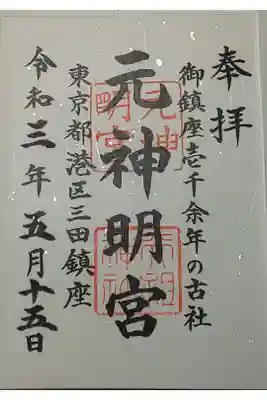 奉拝
御鎮座壱千余年の古社
元神明宮
東京都港区三田鎮座
令和三年五月十五日
元神明宮